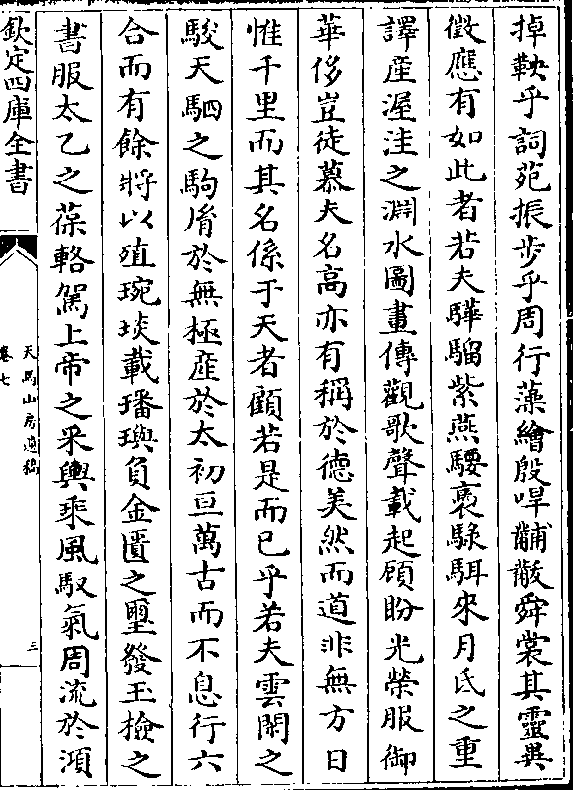 掉鞅乎詞苑振步乎周行藻繪殷哻黼黻舜裳其靈異
徵應有如此者若夫驊騮紫燕騕褭騄駬來月氐之重
譯産渥洼之淵水圖畫傳觀歌聲載起顧盼光榮服御
華侈豈徒慕夫名高亦有稱於德美然而道非無方日
惟千里而其名係于天者顧若是而已乎若夫雲閑之
駿天駟之駒胷於無極産於太初亘萬古而不息行六
合而有餘將以殖琬琰載璠璵負金匱之璽發玉檢之
書服太乙之葆輅駕上帝之采輿乘風馭氣周流於澒
欽定四庫全書
天馬山房遺稿
卷七
三